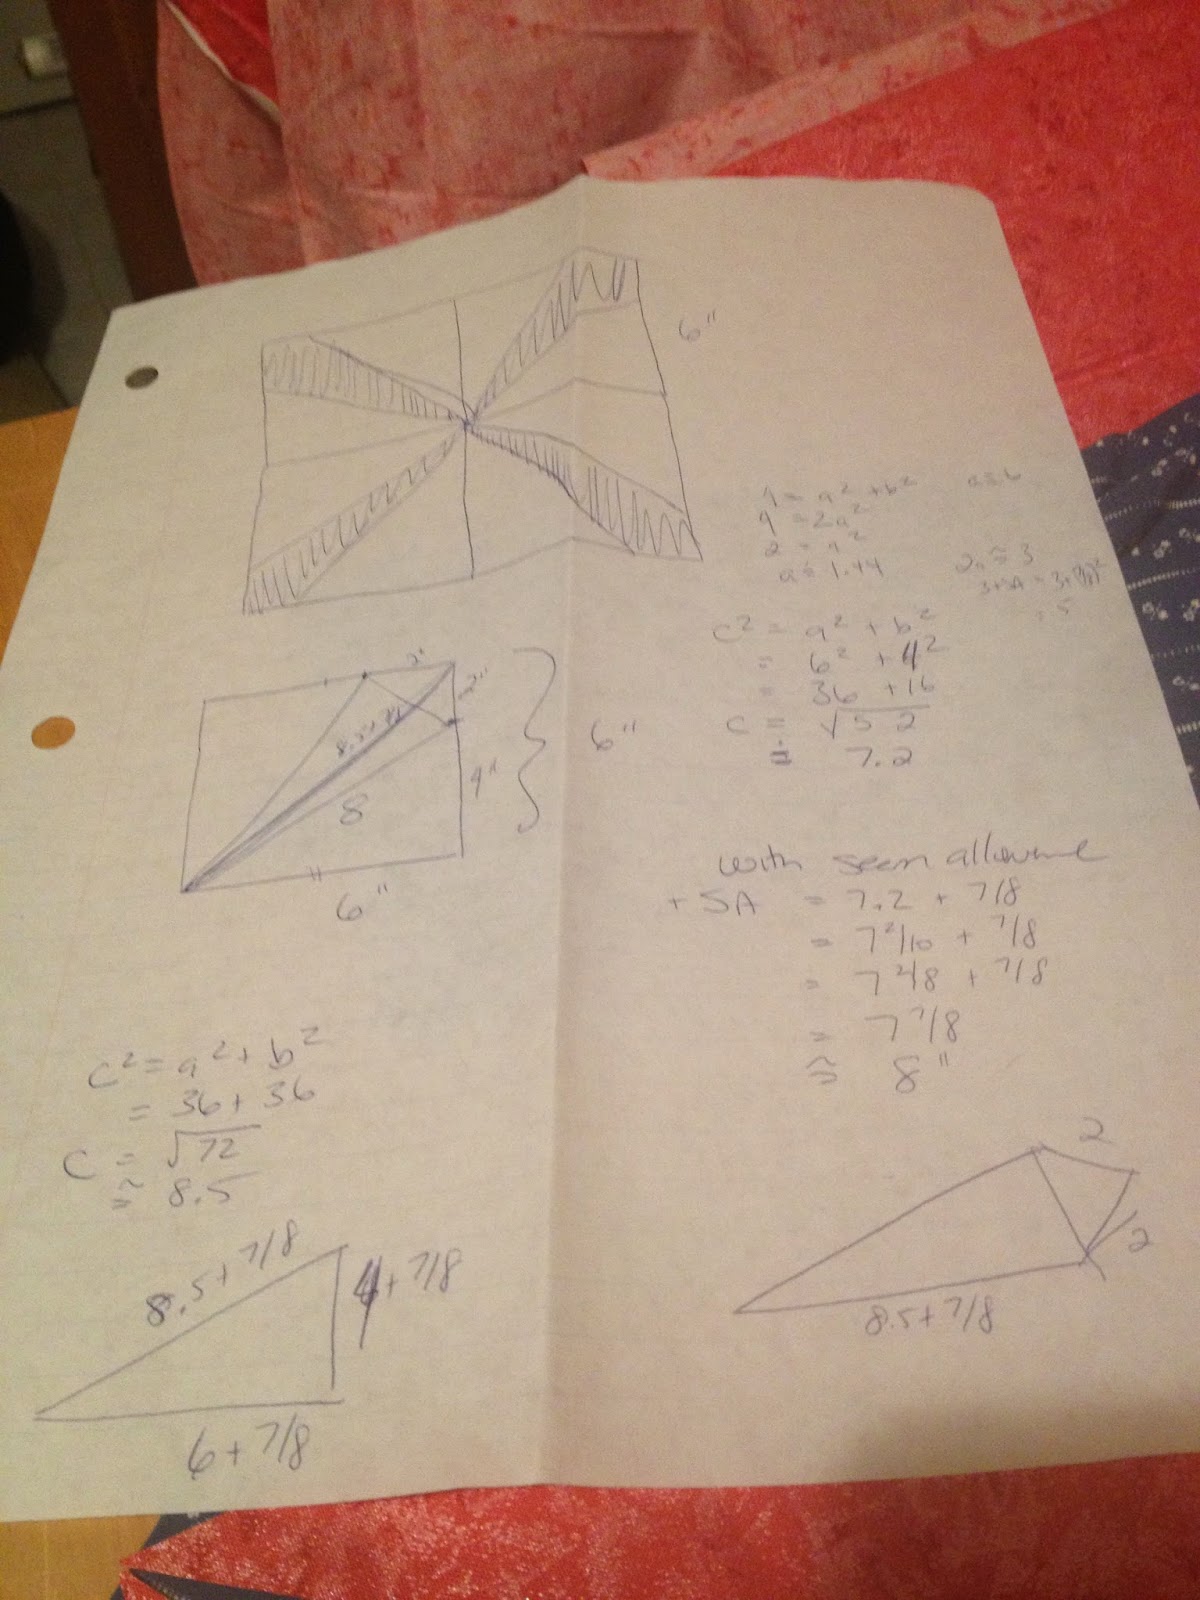 6"
a=b
= a² + b²
= 2a²
a ≐ 1.44
2a ≅ 3
= 5
c² = a² + b²
= 6² + 4²
= 36 + 16
c = √52
≐ 7.2
2"
2"
4"
6"
8
6"
with seam allowance
+ SA = 7.2 + 7/8
= 7 2/10 + 7/8
= 7 + 7/8
= 7 7/8
≅ 8"
c² = a² + b²
= 36 + 36
c = √72
≅ 8.5
8.5 + 7/8
4 + 7/8
6 + 7/8
2
2
8.5 + 7/8